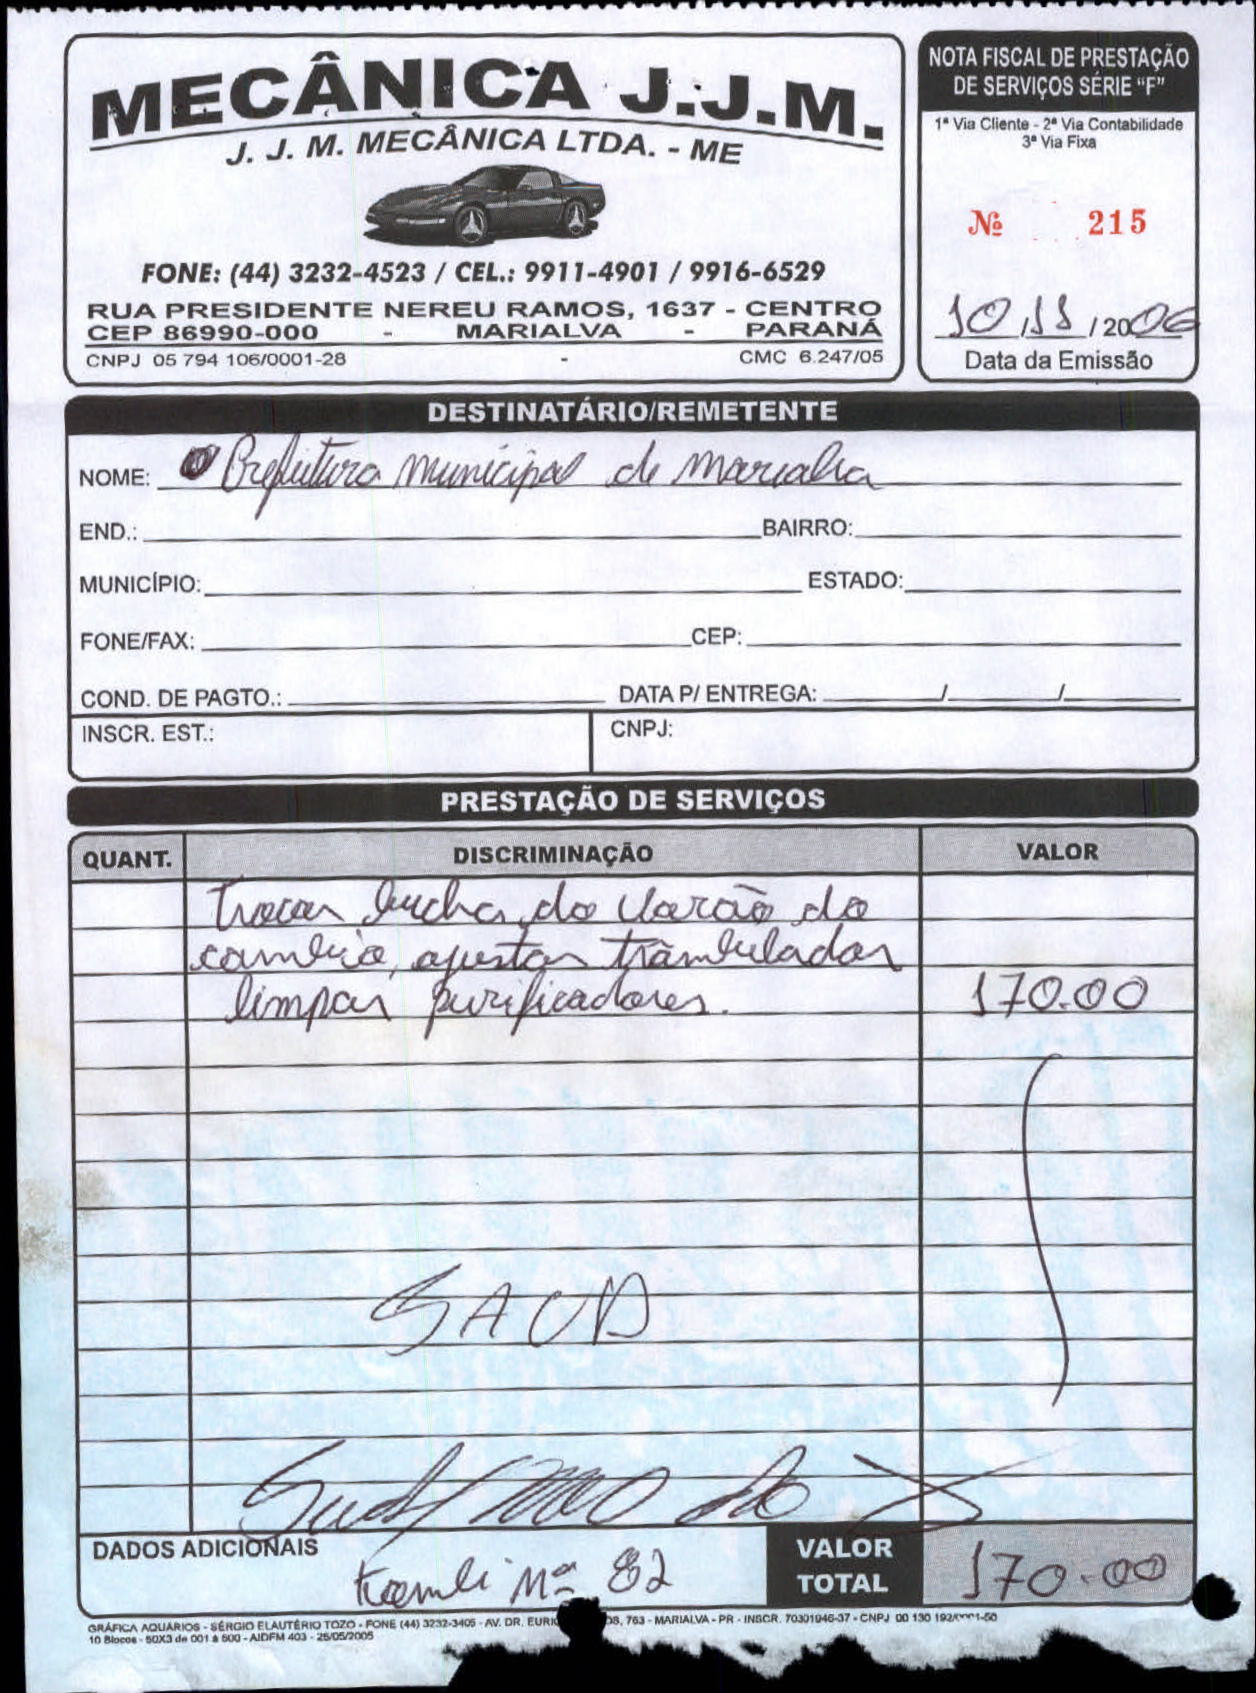 MECÂNICA J.J.M.
J. J. M. MECÂNICA LTDA. - ME
FONE: (44) 3232-4523 / CEL.: 9911-4901 / 9916-6529
RUA PRESIDENTE NEREU RAMOS, 1637 - CENTRO
CEP 86990-000 - MARIALVA - PARANÁ
CNPJ 05 794 106/0001-28 - CMC 6.247/05
NOTA FISCAL DE PRESTAÇÃO
DE SERVIÇOS SÉRIE “F”
1ª Via Cliente - 2ª Via Contabilidade
3ª Via Fixa
Nº 215
10/11/2006
Data da Emissão
DESTINATÁRIO/REMETENTE
NOME: Prefeitura Municipal de Marialva
END.: BAIRRO:
MUNICÍPIO: ESTADO:
FONE/FAX: CEP:
COND. DE PAGTO.: DATA P/ ENTREGA: / /
INSCR. EST.: CNPJ:
PRESTAÇÃO DE SERVIÇOS
QUANT. DISCRIMINAÇÃO VALOR
Trocar bucha do varão do
cambio, ajustar trambulador
limpar purificadores. 170.00
DADOS ADICIONAIS
Kombi Nº 82
VALOR TOTAL 170.00
GRÁFICA AQUÁRIOS - SÉRGIO ELAUTÉRIO TOZO - FONE (44) 3232-3405 - AV. DR. 763 - MARIALVA - PR - INSCR. 70301946-37 - CNPJ 00 130
10 Blocos - 50X3 de 001 a 500 - AIDFM 403 - 25/05/2005